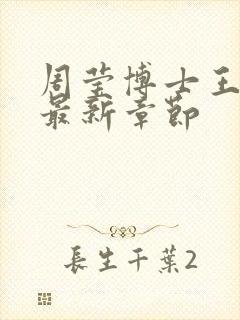 周莹博士王
最新章节
長生千葉2